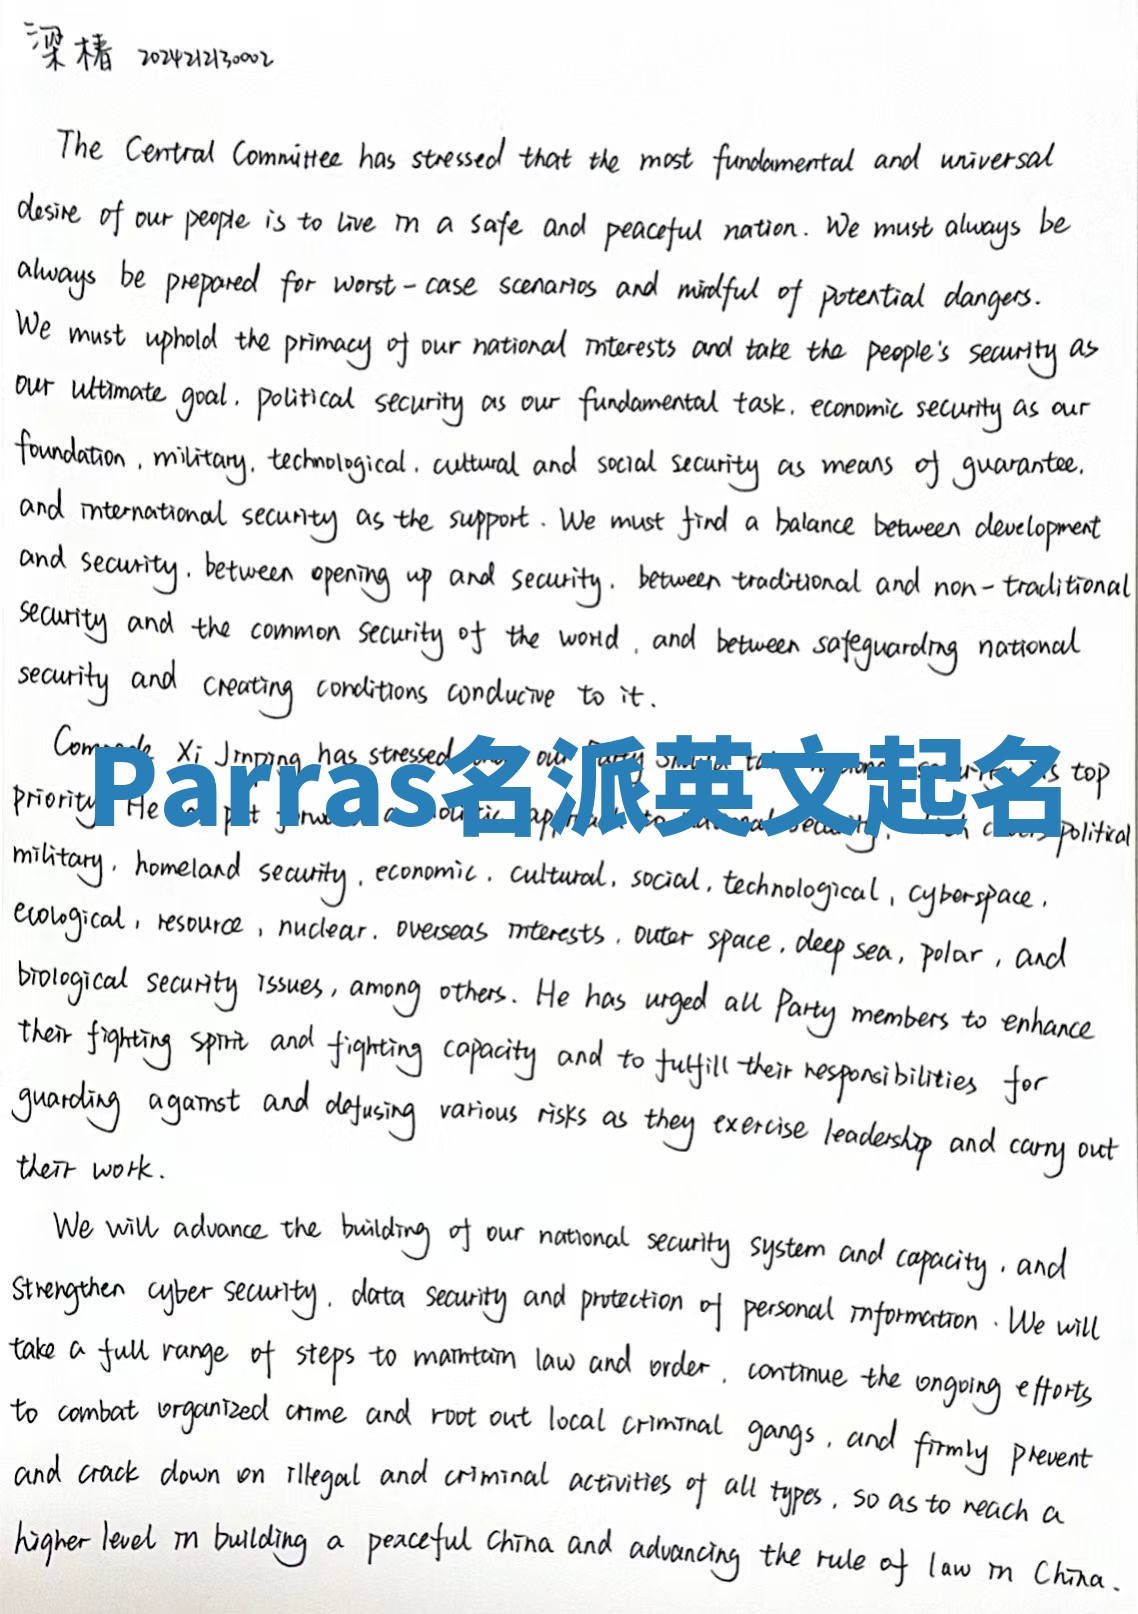 梁椿 2024212130002
The Central Committee has stressed that the most fundamental and universal
desire of our people is to live in a safe and peaceful nation. We must always be
always be prepared for worst-case scenarios and mindful of potential dangers.
We must uphold the primacy of our national interests and take the people's security as
our ultimate goal, political security as our fundamental task, economic security as our
foundation, military, technological, cultural and social security as means of guarantee,
and international security as the support. We must find a balance between development
and security, between opening up and security, between traditional and non-traditional
security and the common security of the world, and between safeguarding national
security and creating conditions conducive to it.
Xi Jinping has stressed our Party top
Parras名派英文起名
priority. He put political
military, homeland security, economic, cultural, social, technological, cyberspace,
ecological, resource, nuclear, overseas interests, outer space, deep sea, polar, and
biological security issues, among others. He has urged all Party members to enhance
their fighting spirit and fighting capacity and to fulfill their responsibilities for
guarding against and defusing various risks as they exercise leadership and carry out
their work.
We will advance the building of our national security system and capacity, and
strengthen cyber security, data security and protection of personal information. We will
take a full range of steps to maintain law and order, continue the ongoing efforts
to combat organized crime and root out local criminal gangs, and firmly prevent
and crack down on illegal and criminal activities of all types, so as to reach a
higher level in building a peaceful China and advancing the rule of law in China.